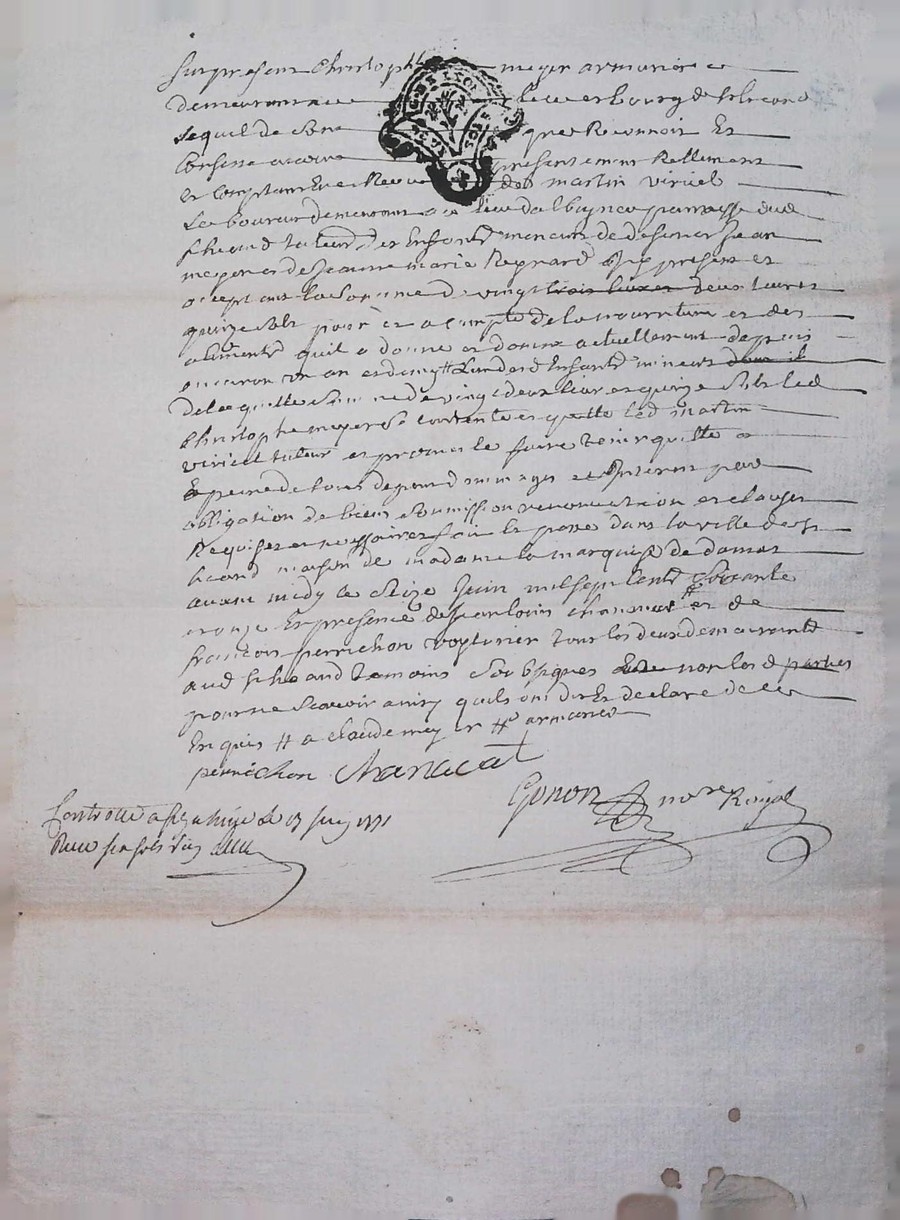 fut present Christophle meyer armurier
demeurant au lieu et bourg de st heand
lequel de son gré Reconnoit Et
Confesse avoir presentement Rellement
et Comptant Eu et Receu de martin viricel
Laboureur demeurant au lieu d'albigneu parroisse dud
st heand tuteur des Enfants mineurs de deffunct Jean
meyer et de Jeanne marie Reynard Icy present et
acceptant la Somme de vingt trois livres deux livres
quinze sols pour et a compte de la nourriture et des
aliments quil a donné et donne actuellement depuis
environ un an et demy # L'un desd Enfants mineurs dont il
de laquelle somme de vingt deux livres quinze sols led
Christophe meyer se contente et quitte led martin
viricel tuteur et promet le faire tenir quitte a
peine de tous depend dommages et Interest par
obligation de biens soumission renonciation et clauses
Requises et necessaires fait et passé dans la ville de st
heand maison de madame la marquise de damas
avant midy le seize Juin mil sept Cents Soixante
onze En presence de Jean louis chanavat # et de
francois perrichon voyturier tous les deux demeurants
aud st heand temoins Soubsignes non led parties
pour ne Scavoir ainsy quils ont dit Et declaré de ce
Enquis # a claude meyer # armurier
perrichon Chanavat
Gonon nore Royal
Controllé a le 17 juin 1771
Recu sols